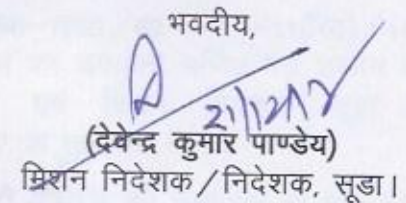 भवदीय,
21/12/17
(देवेन्द्र कुमार पाण्डेय)
मिशन निदेशक/निदेशक, सूडा।